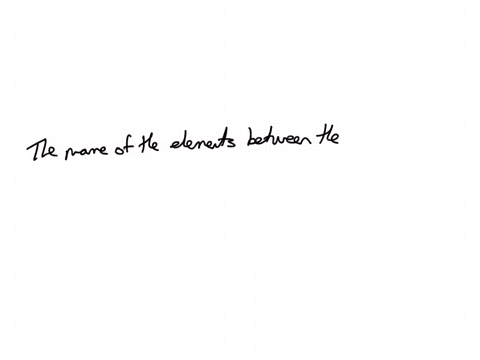 The name of the elements between the